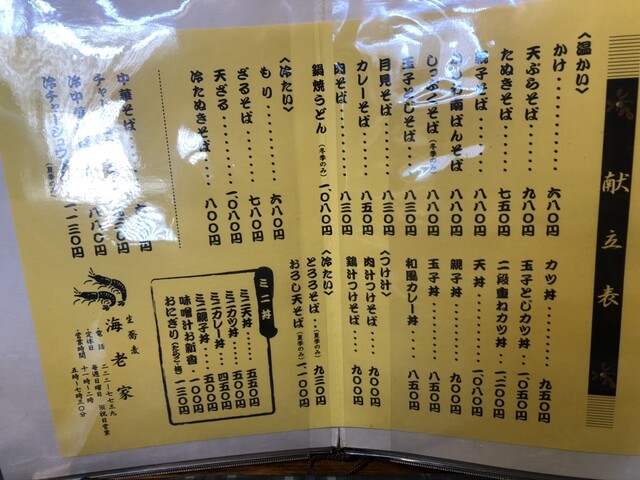 献立表
〈温かい〉
かけ・・・・・・・・・六八〇円
天ぷらそば・・・・・九八〇円
たぬきそば・・・・・七五〇円
親子そば・・・・・・八八〇円
南ばんそば・・・八八〇円
しっぽくそば(冬季のみ)・・八八〇円
玉子とじそば・・・八三〇円
月見そば・・・・・・八三〇円
カレーそば・・・・・八五〇円
肉そば・・・・・・・・八三〇円
鍋焼うどん(冬季のみ)一、〇八〇円
〈冷たい〉
もり・・・・・・・・・六八〇円
ざるそば・・・・・・七八〇円
天ざる・・・・・一、〇八〇円
冷たぬきそば・・・・八〇〇円
中華そば・・・・・
冷チャーシュウ(夏季のみ)一、一三〇円
カツ丼・・・・・・・・九五〇円
玉子とじカツ丼・・一、〇五〇円
二段重ねカツ丼・・一、二〇〇円
天丼・・・・・・・一、〇八〇円
親子丼・・・・・・・・九〇〇円
玉子丼・・・・・・・・八五〇円
和風カレー丼・・・・八五〇円
〈つけ汁〉
肉汁つけそば・・・・九〇〇円
鶏汁つけそば・・・・九〇〇円
〈冷たい〉
とろろそば・・(夏季のみ)・九三〇円
おろし天そば(夏季のみ)一、一〇〇円
ミニ丼
ミニ天丼・・・・・五五〇円
ミニカツ丼・・・・五〇〇円
ミニカレー丼・・・四五〇円
ミニ親子丼・・・・五〇〇円
味噌汁お新香・一〇〇円
おにぎり 一三〇円
生蕎麦
海老家
・電話 二二二―七七三九
・定休日 毎週日曜日 ※祝日営業
・営業時間 十一時~二時
五時~七時三〇分